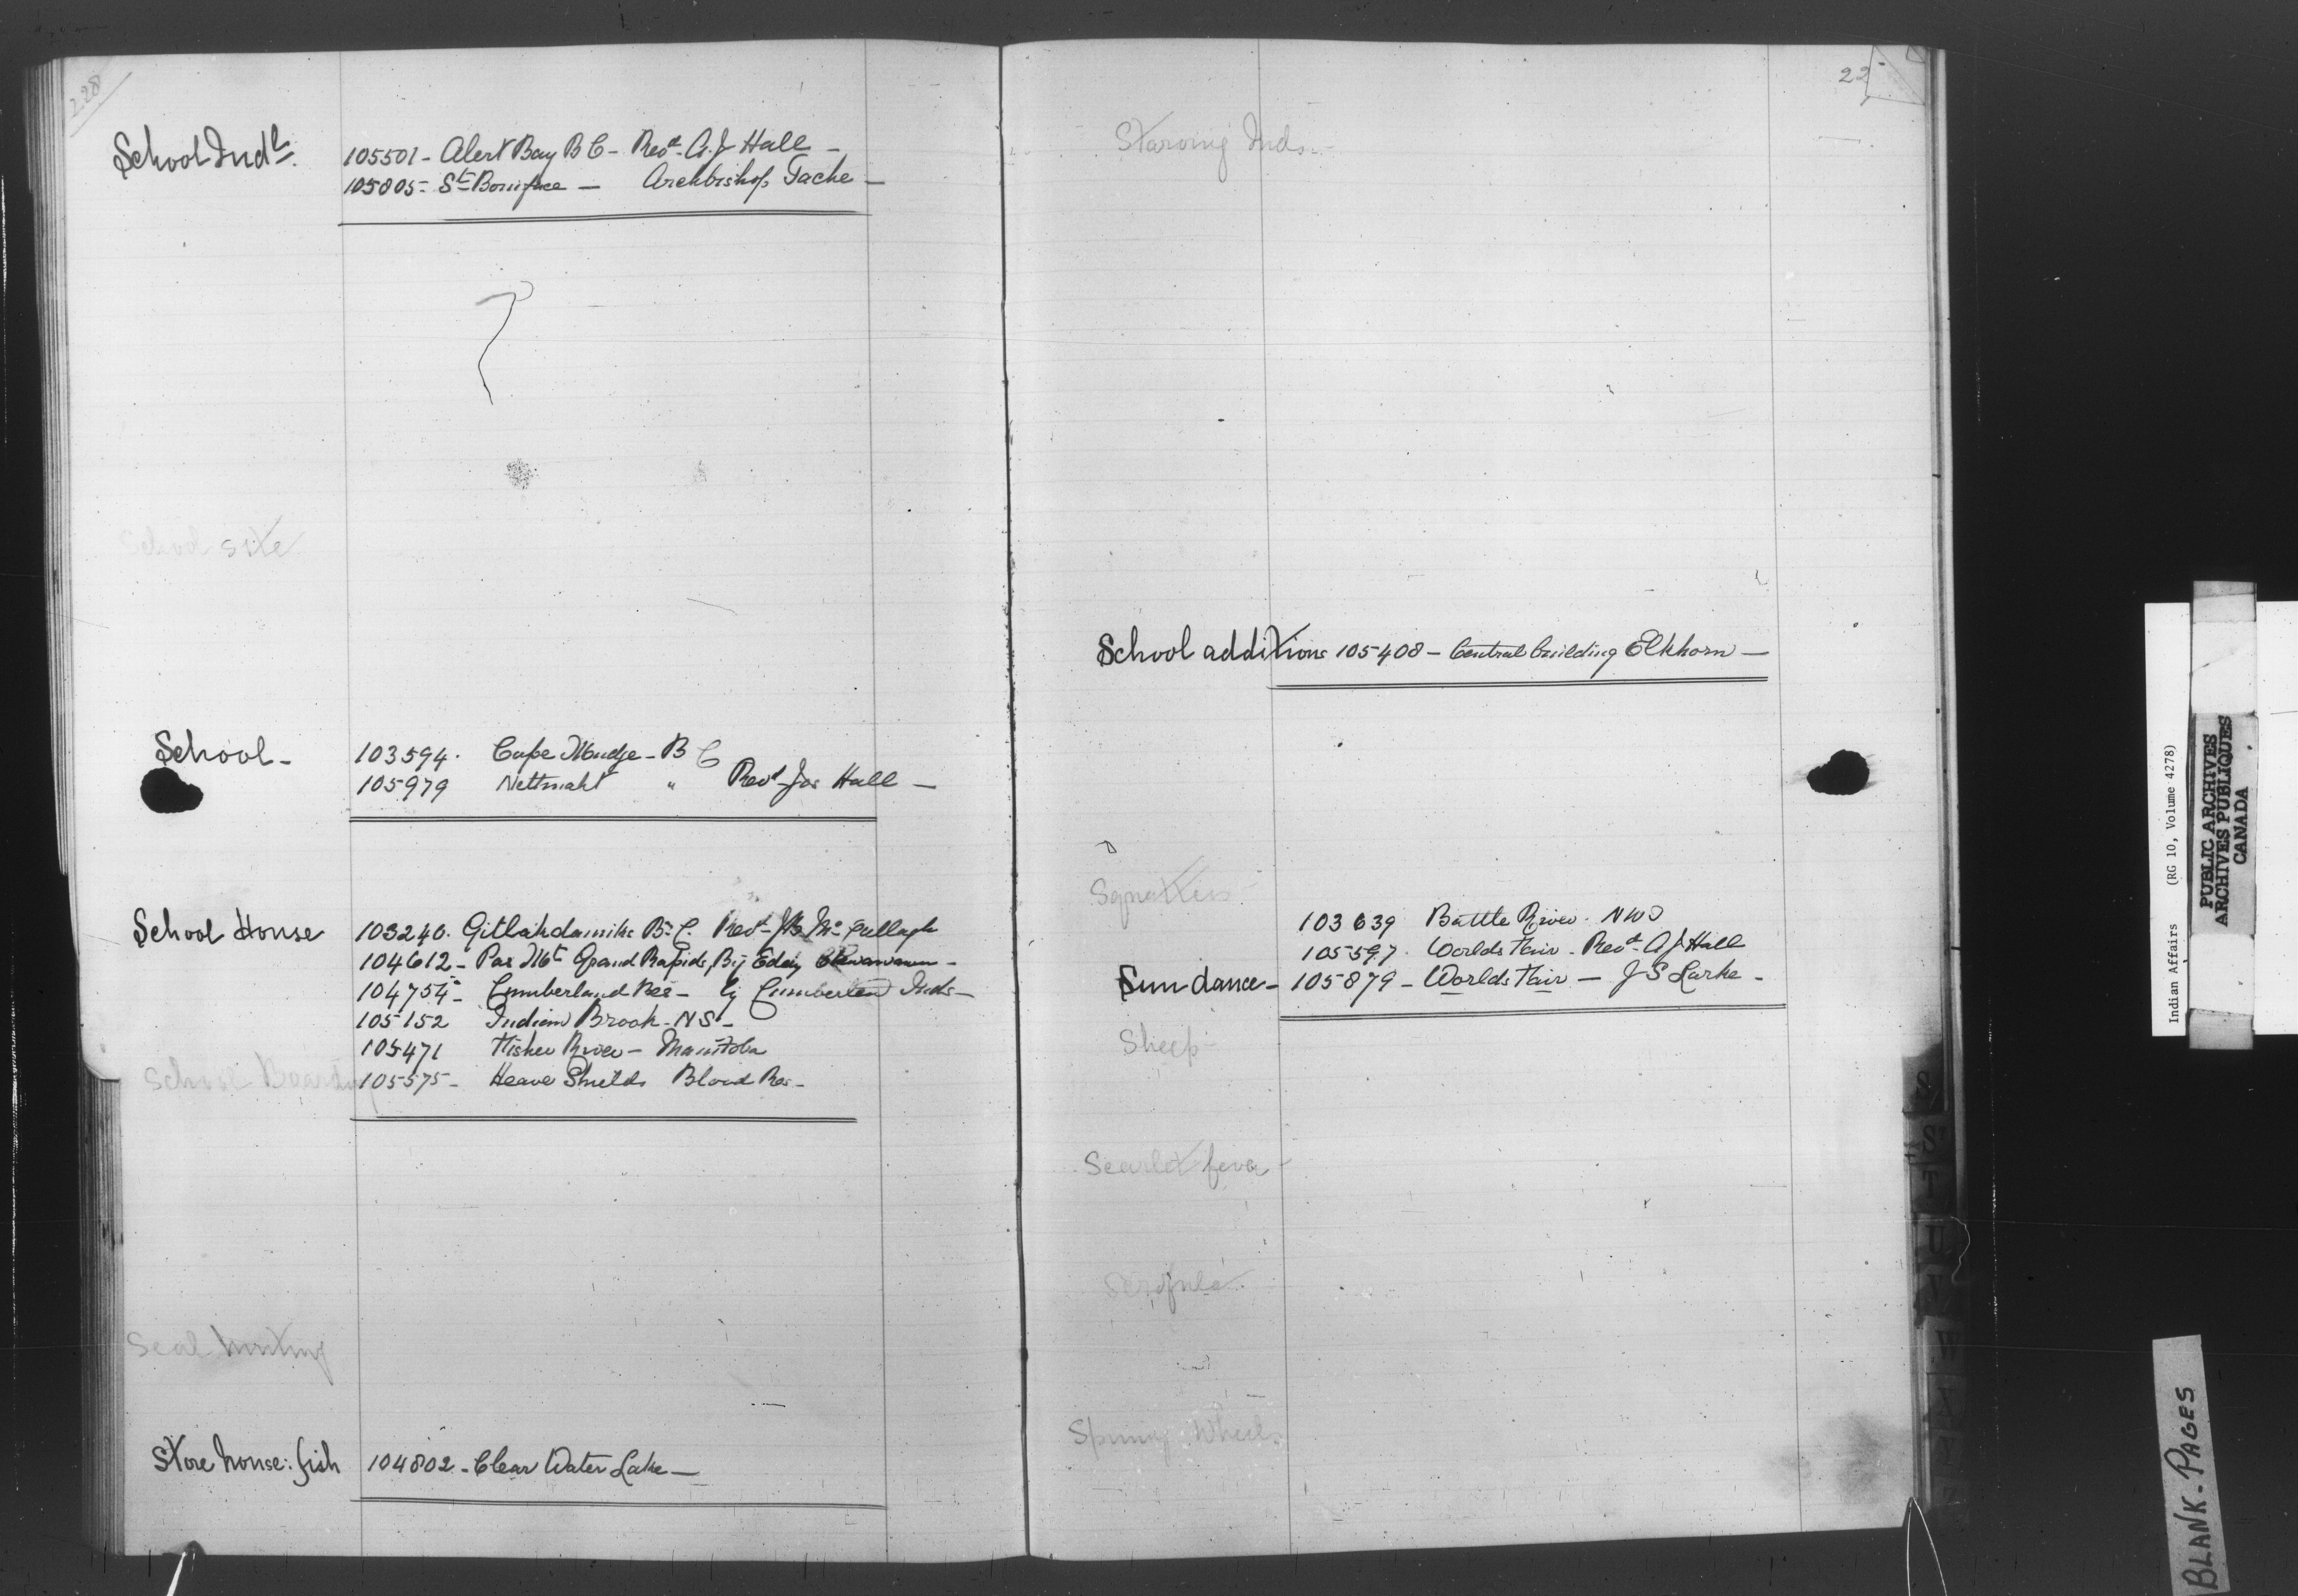 228
School Indl.
105501 - Alert Bay B C - Revd. A. J Hall -
105805 - St Boniface - Archbishop Tache -
School site
School - 103594. Cape Mudge - B C
105979 " Revd Jas Hall -
School House 103240. Gitlakdamiks B. C. Revd J B McCullagh
104612 - Pas Mt Grand Rapids, By Eddy
104754 - Cumberland Res - by Cumberland Inds -
105152 Indian Brook - N S -
105471 Fisher River - Manitoba
School Boarding 105575 - Heave Shields Blood Res -
Seal hunting
Store house: fish 104802 - Clear Water Lake -
22
Starving Inds -
School additions 105408 - Central building Elkhorn -
Squatters
103639 Battle River. NWT
105597. Worlds Fair - Revd. A J Hall
Sun dance - 105879 - Worlds Fair - J S Larke -
Sheep
Scarlet fever
Scrofula
Spinning Wheels
S
S
T
U
V
W
Y
Z
Indian Affairs (RG 10, Volume 4278)
PUBLIC ARCHIVES
ARCHIVES PUBLIQUES
CANADA
BLANK - PAGES